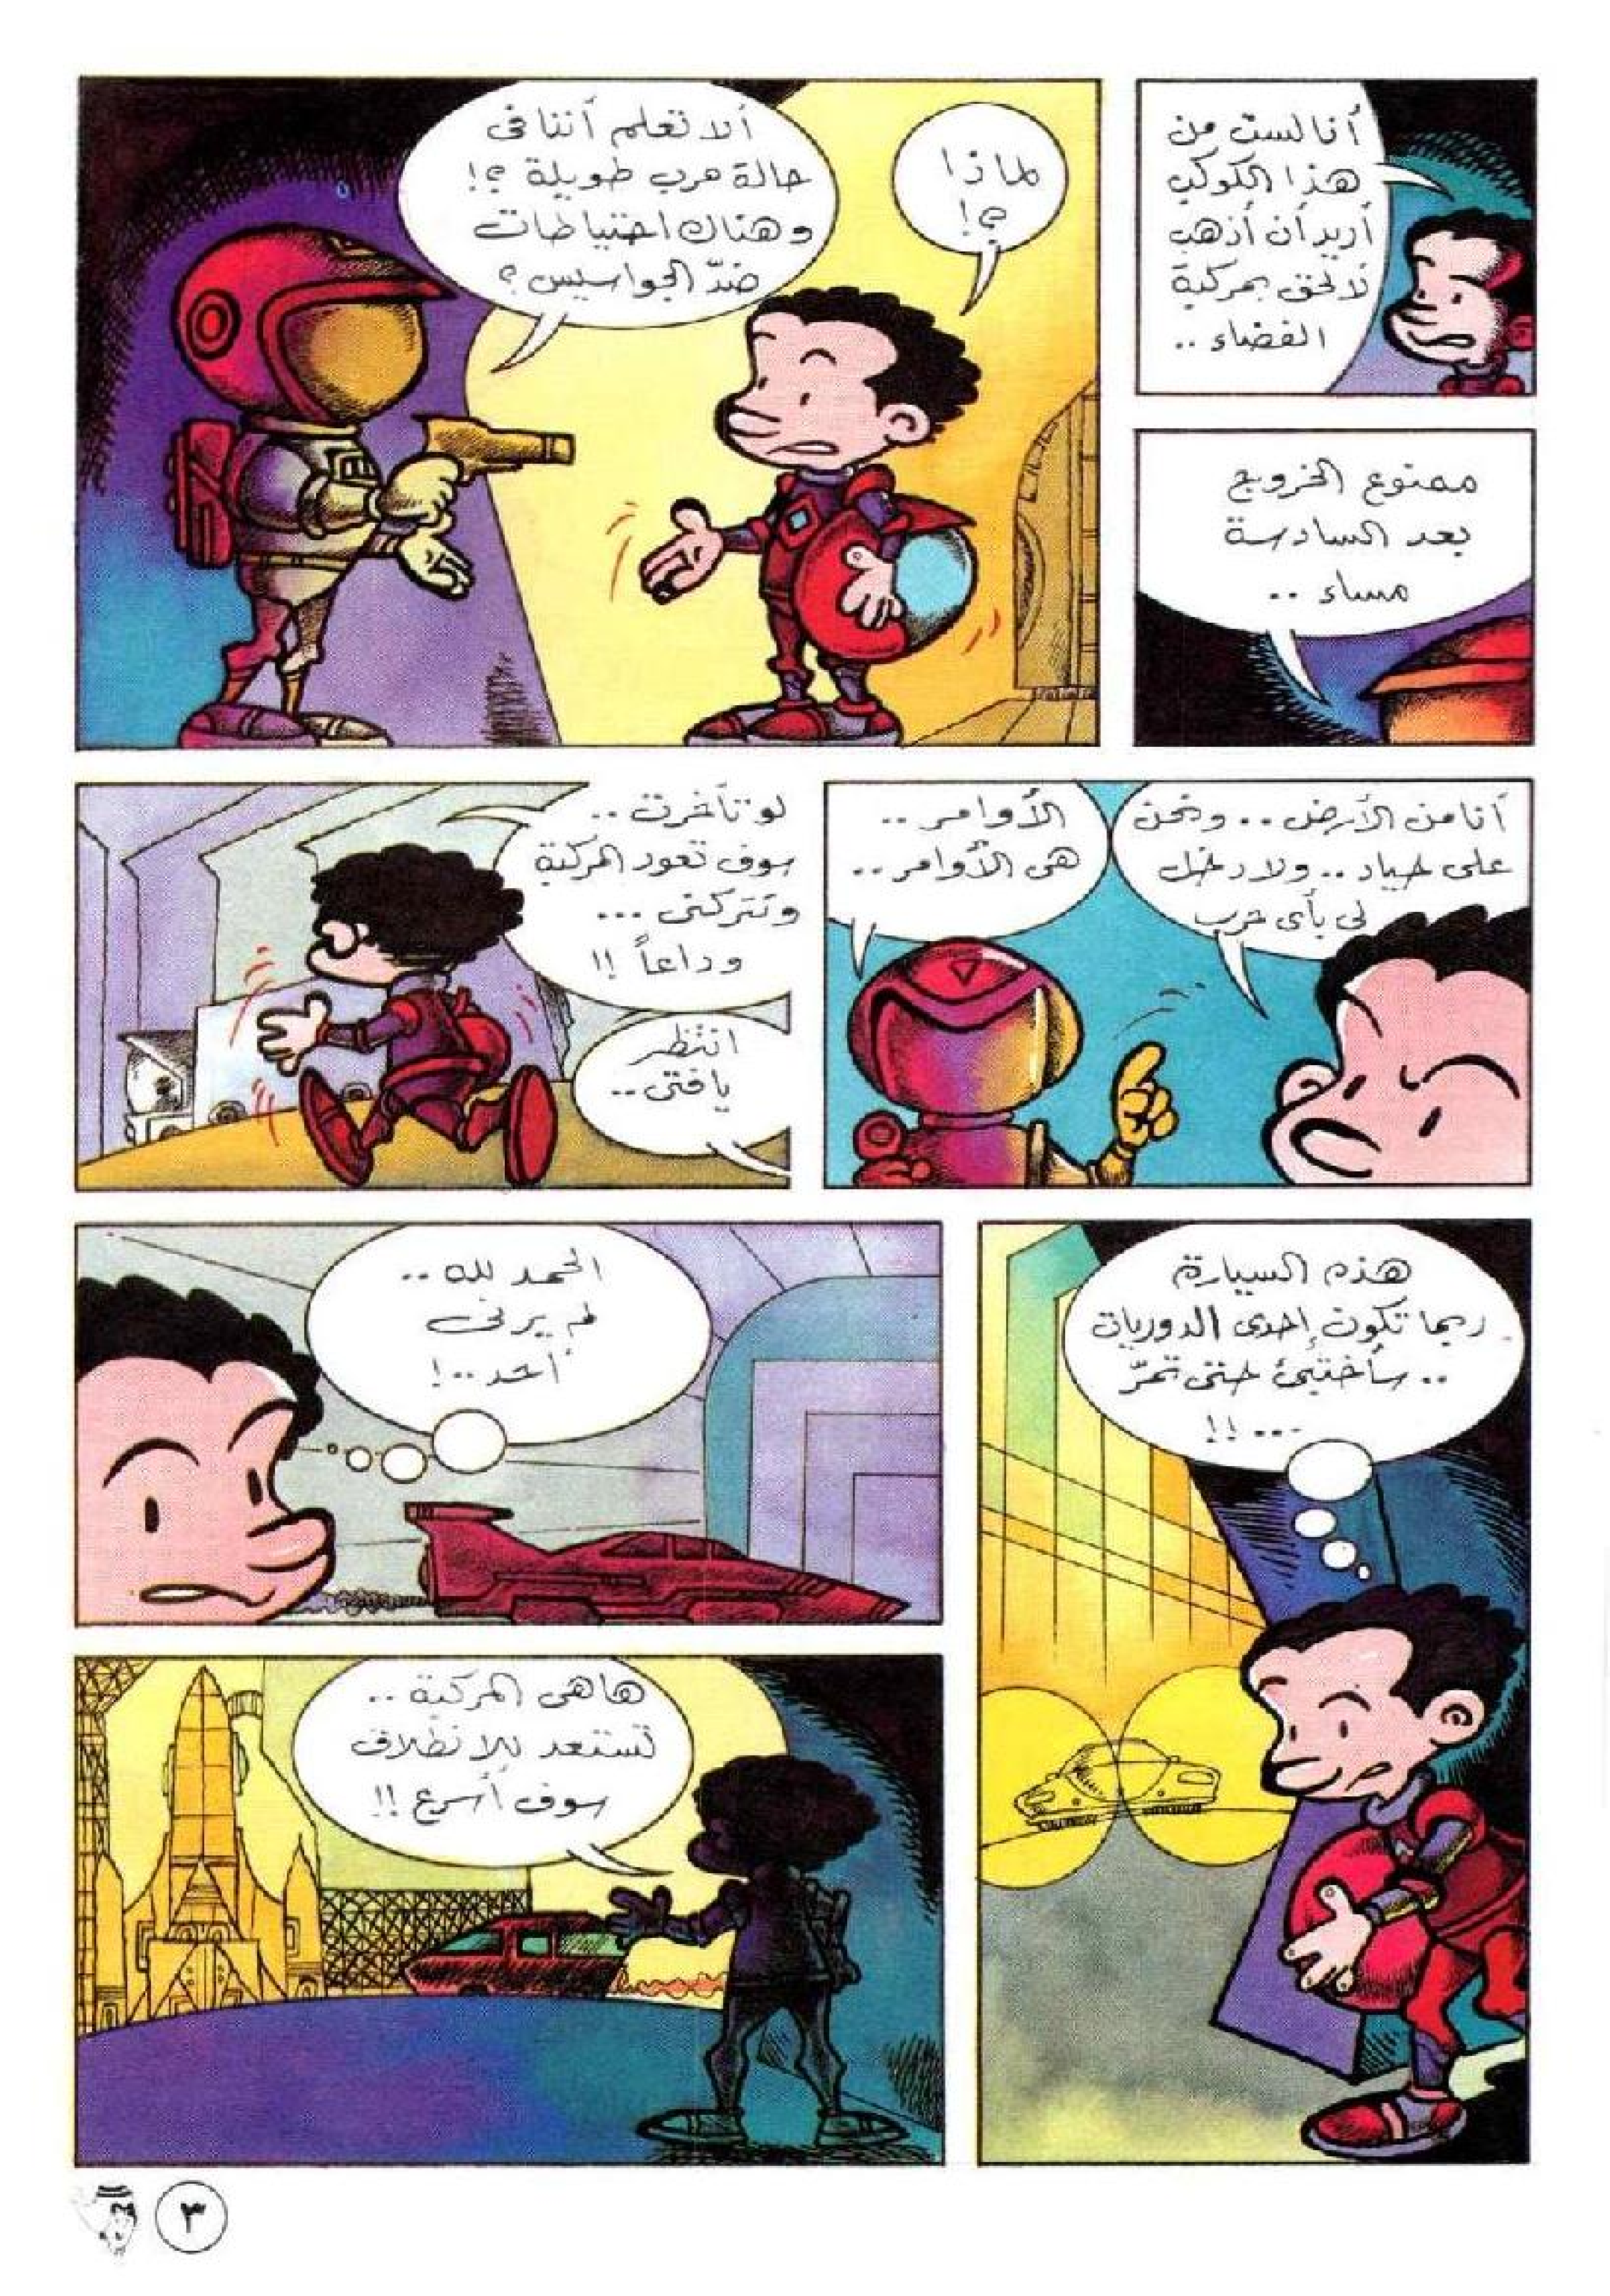 أنا لست من
هذا الكوكب
أريد أن أذهب
لألحق بمركبة
الفضاء ..
ممنوع الخروج
بعد السادسة
مساء ..
لماذا
؟!
ألا تعلم أننا فى
حالة حرب طويلة ؟!
وهناك احتياطات
ضدّ الجواسيس ؟
أنا من الأرض .. ونحن
على حياد .. ولا دخل
لى بأى حرب
الأوامر ..
هى الأوامر ..
لو تأخرت ..
سوف تعود المركبة
وتتركنى ...
وداعاً !!
انتظر
يا فتى ..
هذه السيارة
ربما تكون إحدى الدوريات
.. سأختبئ حتى تمرّ
... !!
الحمد لله ..
لم يرنى
أحد ..!
هاهى المركبة ..
تستعد للإنطلاق
سوف أسرع !!
٣